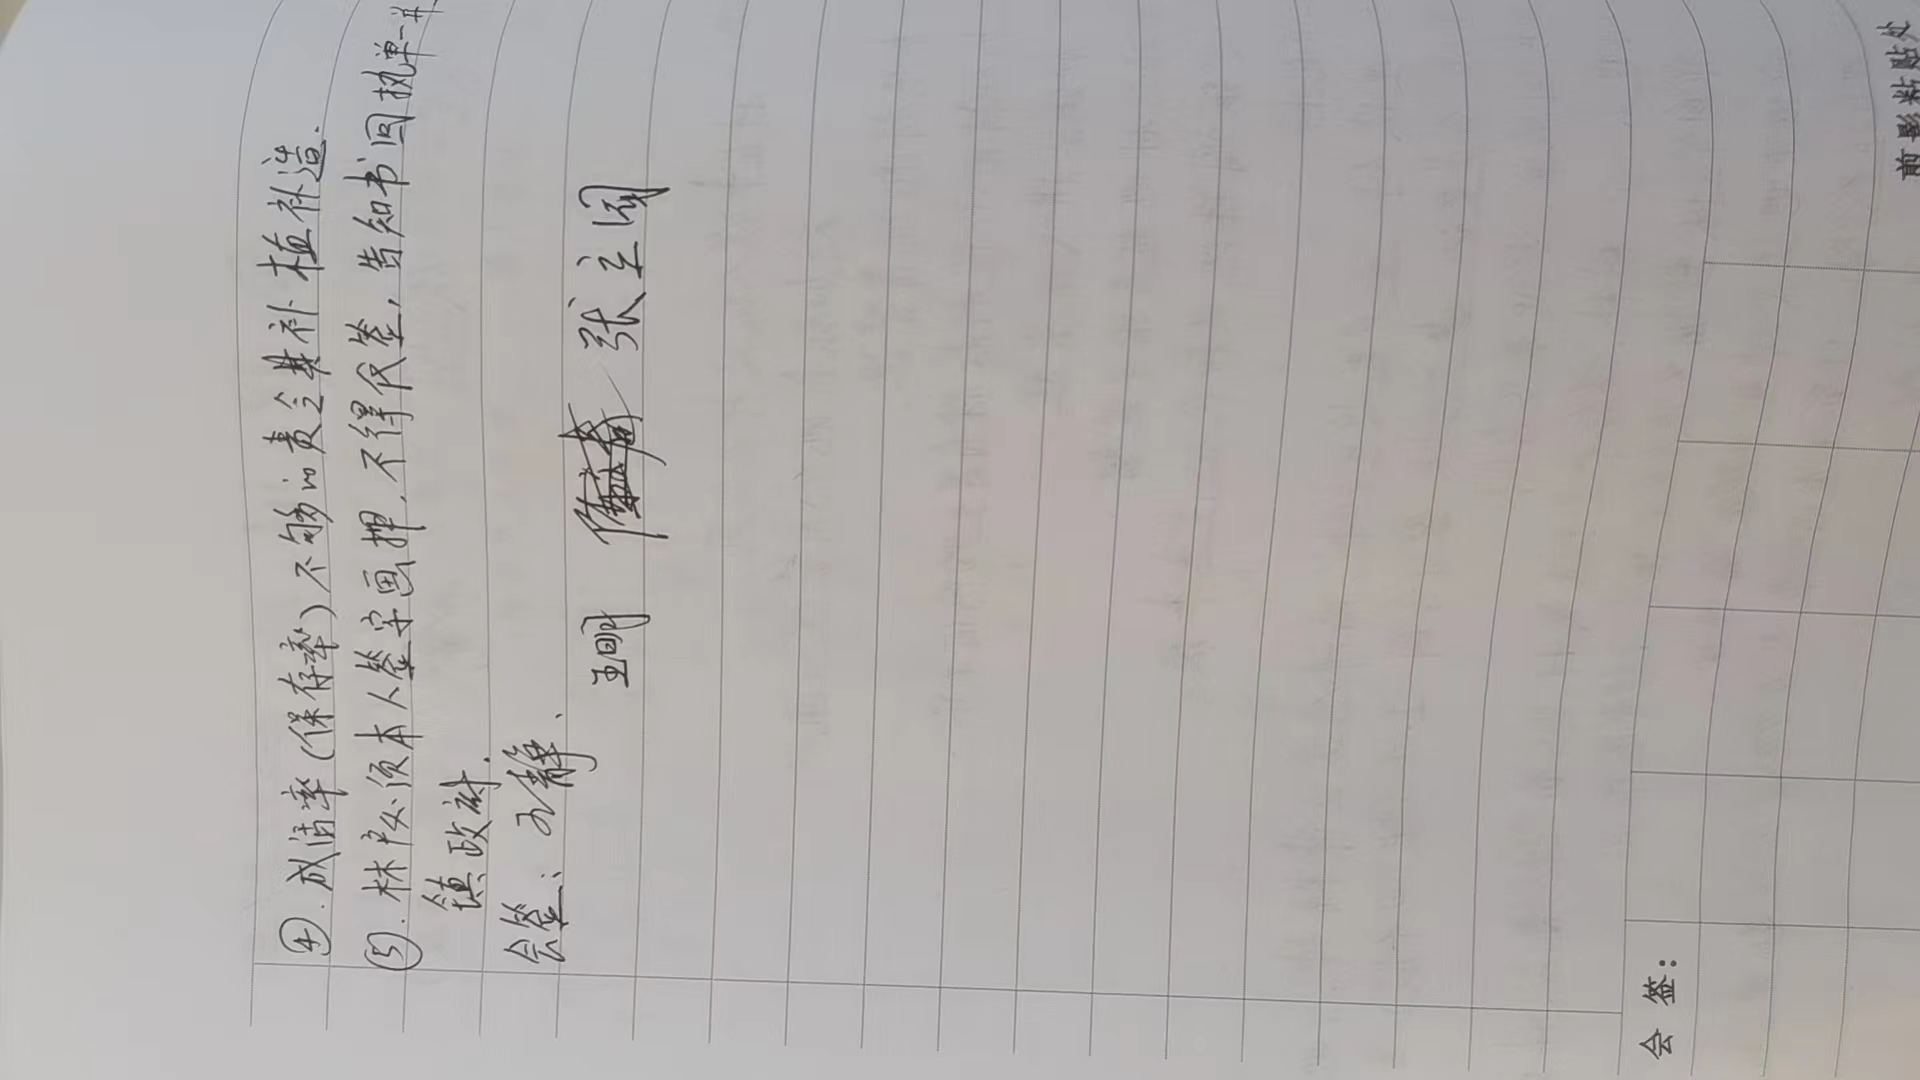 ④.成活率(保存率)不够的责令其补植补造.
⑤.林户必须本人签字画押.不得代签,告知书回执单一并
镇政府.
会签:
王明 张立国
会签:
前影粘贴处